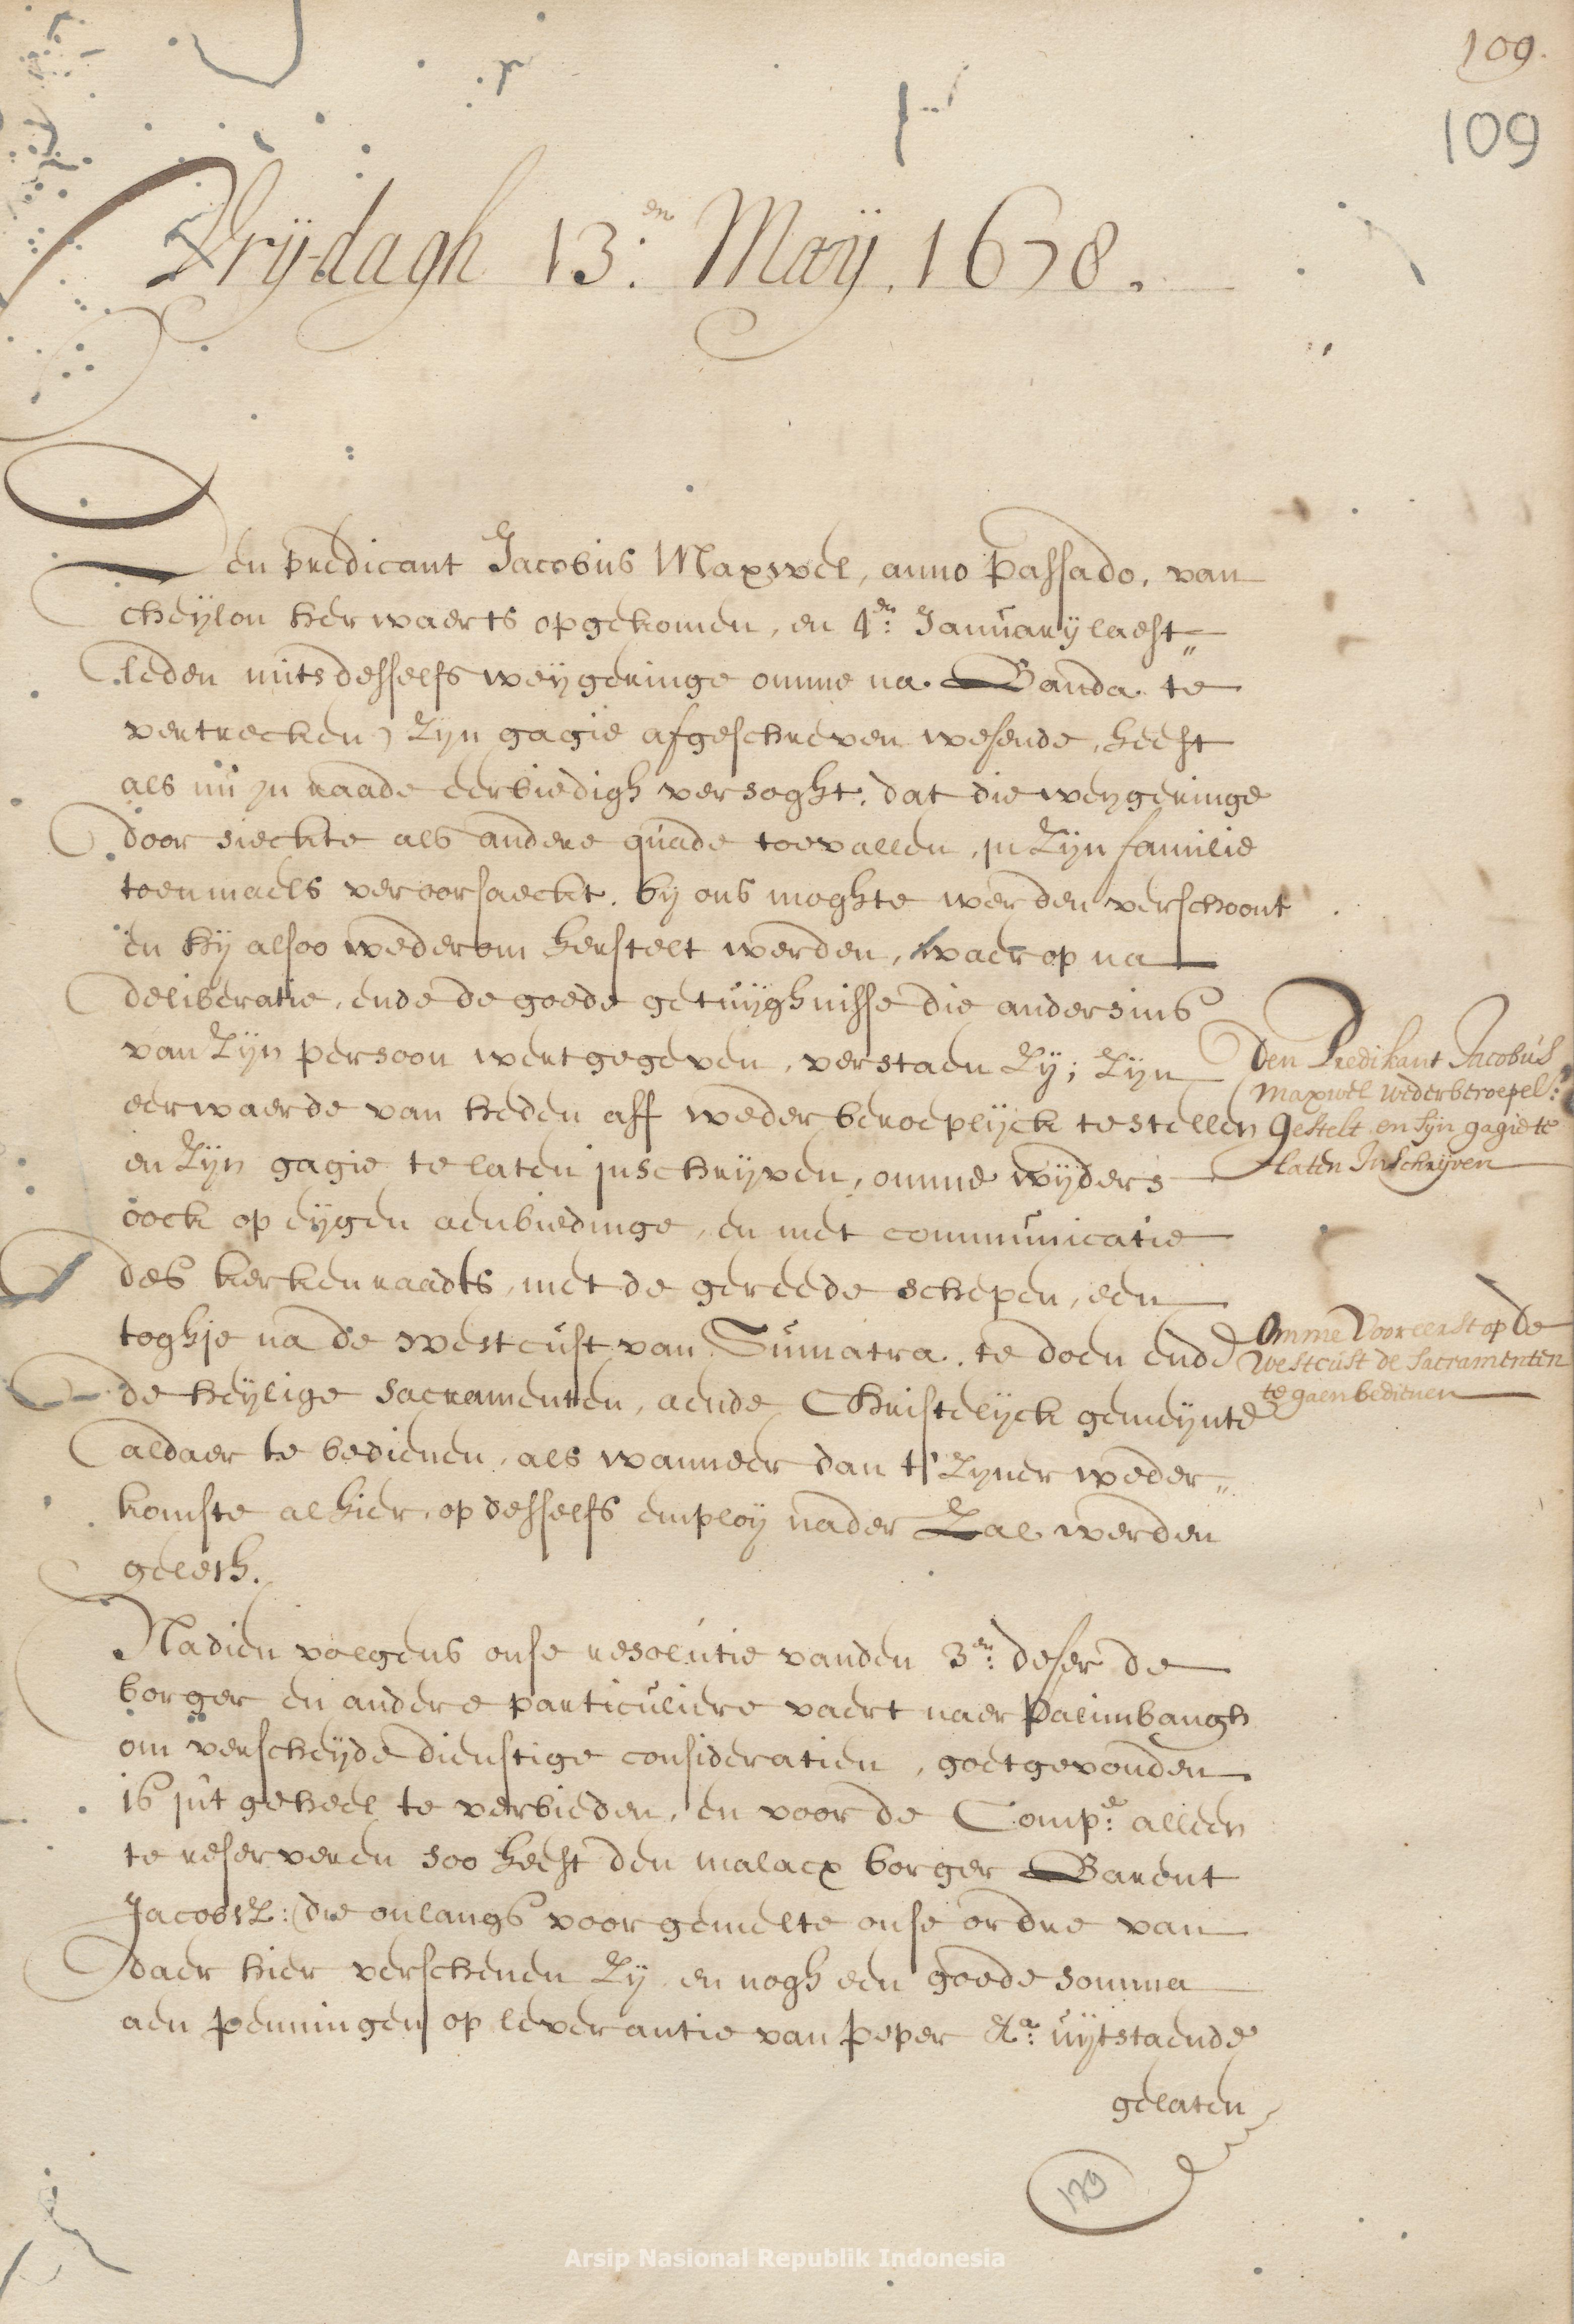 109.
109
Vrydagh 13:en Maij. 1678.
Den predicant Jacobus Maxwel, anno passado, van
Cheijlon herwaerts opgekomen, en 4:en Januarij laest„
leden mits desselfs weijgeringe omme na Banda te
vertrecken) zijn gagie afgeschreven wesende, heeft
als nu in raade eerbiedigh versoght, dat die weygeringe
door sieckte als andere quade toevallen, in zijn familie
toenmaels veroorsaeckt, by ons moghte werden verschoont
en hij alsoo wederom herstelt werden, waer op na
deliberatie, ende de goede getuijghnisse die andersins
van zijn persoon wert gegeven, verstaen zy; zijn
eerwaerde van heden aff weder beroeplijck te stellen
en zijn gagie te laten inschrijven, omme wijders
oock op eijgen aenbiedinge, en met communicatie
des kerkenraadts, met de gereede schepen, een
toghje na de westcust van Sumatra. te doen ende
de heijlige sacramenten, aende Christelijck gemeijnte
aldaer te bedienen, als wanneer dan t' zyner weder„
komste alhier, op desselfs emploij nader zal werden
geleth.
Den Predikant Jacobus
Maxwel wederberoepel:
Gestelt en sijn gagie te
laten Inschrijven
Omme Vooreerst op de
westcust de Sacramenten
te gaen bedienen
Nadien volgens onse resolutie vanden 3:en deser de
borger en andere particuliere vaert naer Palimbangh
om verscheijde dienstige consideratien, goetgevonden
is int geheel te verbieden, en voor de Comp:e alleen
te reserveren soo heeft den malacx borger Barent
Jacobsz: (die onlangs voor gemelte onse ordre van
daer hier verschenen zij en nogh een goede somma
aen penningen op leverantie van peper &a: uijtstaende
gelaten
129
Arsip Nasional Republik Indonesia